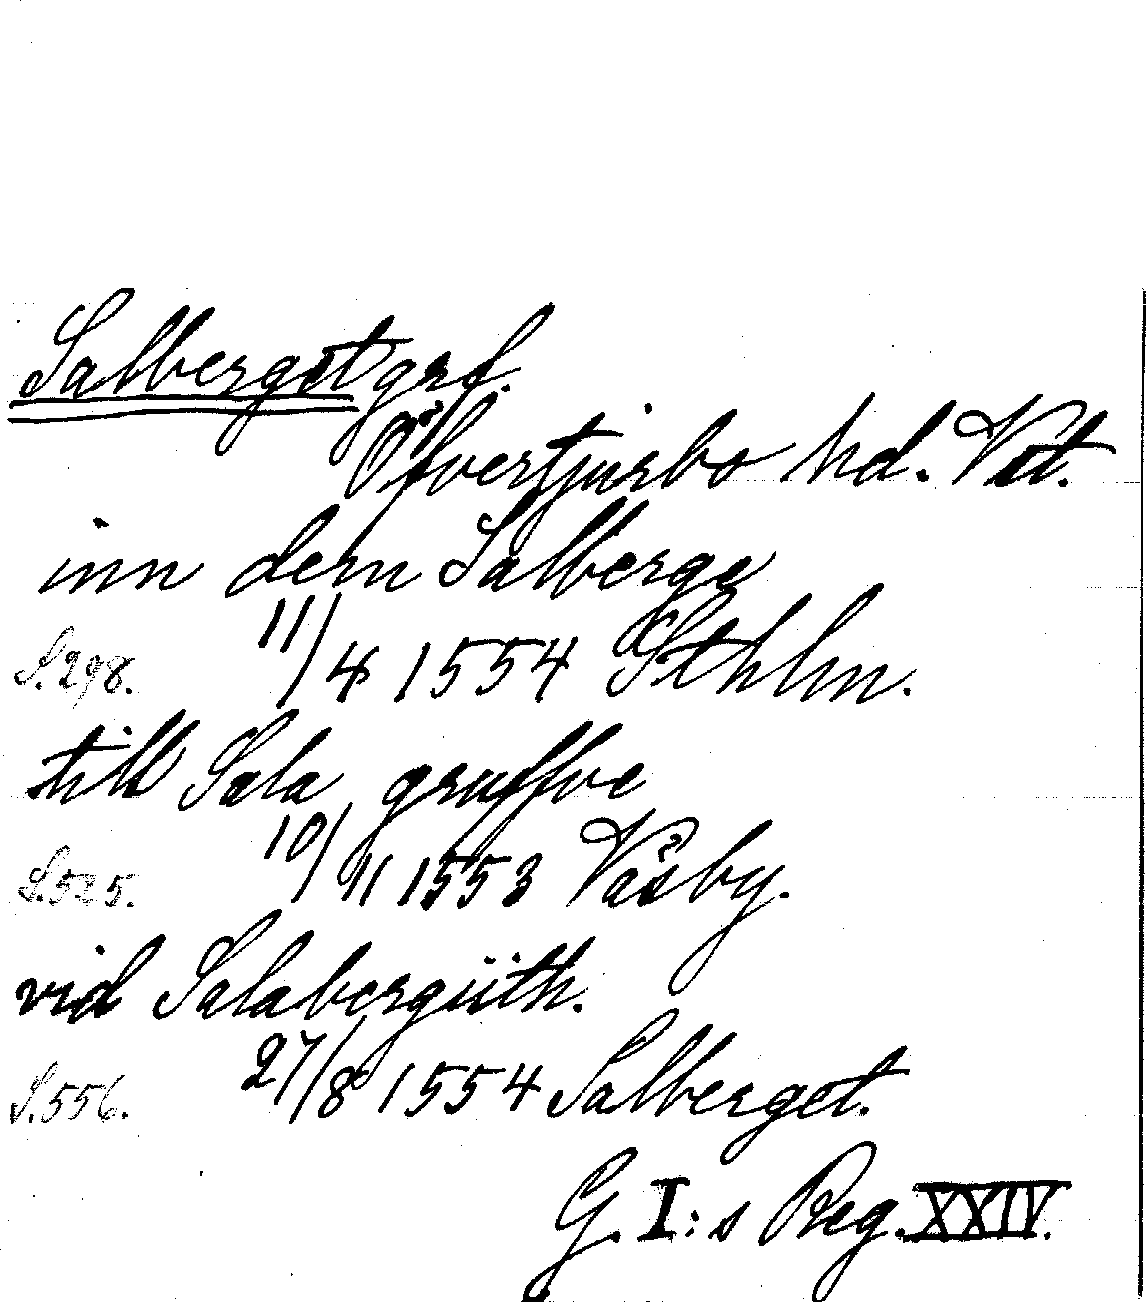 Salberget grf.
Öfvertjurbo hd. Vst.
inn dem Salberge
S. 298. 11/4 1554 Sthlm.
till Sala gruffve
S. 525. 10/11 1553 Väsby.
vid Salabergüth.
S. 556. 27/8 1554 Salberget.
G. I:s Reg. XXIV.